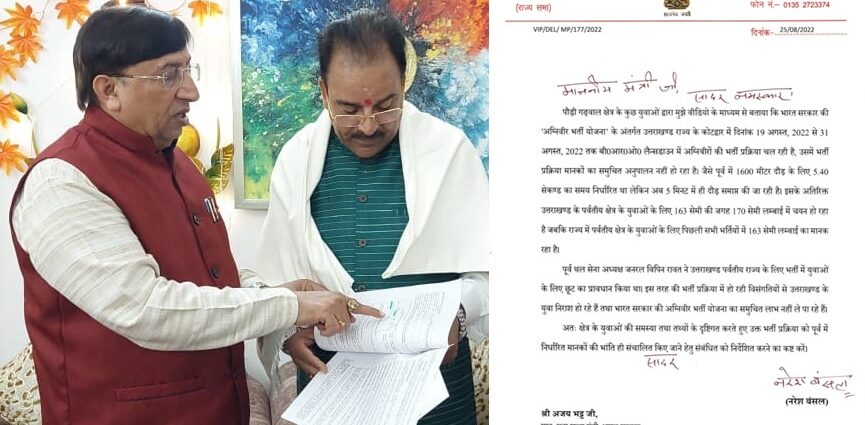 (राज्य सभा)
सत्यमेव जयते
फोन नं.- 0135 2723374
VIP/DEL/ MP/177/2022
दिनांक- 25/08/2022
माननीय मंत्री जी,
सादर नमस्कार
पौड़ी गढ़वाल क्षेत्र के कुछ युवाओं द्वारा मुझे वीडियो के माध्यम से बताया कि भारत सरकार की
'अग्निवीर भर्ती योजना' के अंतर्गत उत्तराखण्ड राज्य के कोटद्वार में दिनांक 19 अगस्त, 2022 से 31
अगस्त, 2022 तक बी0आर0ओ0 लैन्सडाउन में अग्निवीरों की भर्ती प्रक्रिया चल रही है, उसमें भर्ती
प्रक्रिया मानकों का समुचित अनुपालन नहीं हो रहा है। जैसे पूर्व में 1600 मीटर दौड़ के लिए 5.40
सेकण्ड का समय निर्धारित था लेकिन अब 5 मिनट में ही दौड़ समाप्त की जा रही है। इसके अतिरिक्त
उत्तराखण्ड के पर्वतीय क्षेत्र के युवाओं के लिए 163 सेमी की जगह 170 सेमी लम्बाई में चयन हो रहा
है जबकि राज्य में पर्वतीय क्षेत्र के युवाओं के लिए पिछली सभी भर्तियों में 163 सेमी लम्बाई का मानक
रहा है।
पूर्व थल सेना अध्यक्ष जनरल विपिन रावत ने उत्तराखण्ड पर्वतीय राज्य के लिए भर्ती में युवाओं
के लिए छूट का प्रावधान किया था। इस तरह की भर्ती प्रक्रिया में हो रही विसंगतियों से उत्तराखण्ड के
युवा निराश हो रहे हैं तथा भारत सरकार की अग्निवीर भर्ती योजना का समुचित लाभ नहीं ले पा रहे हैं।
अतः क्षेत्र के युवाओं की समस्या तथा तथ्यों के दृष्टिगत करते हुए उक्त भर्ती प्रक्रिया को पूर्व में
निर्धारित मानकों की भांति ही संचालित किए जाने हेतु संबंधित को निर्देशित करने का कष्ट करें।
सादर
नरेश बंसल
(नरेश बंसल)
श्री अजय भट्ट जी,